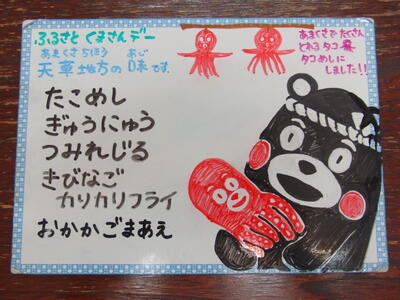 ふるさと くまさんデー
あまくさちほう あじ
天草地方の味です。
あまくさでたくさん
とれるタコを
タコめしに
しました!!
たこめし
ぎゅうにゅう
つみれじる
きびなご
カリカリフライ
おかかごまあえ